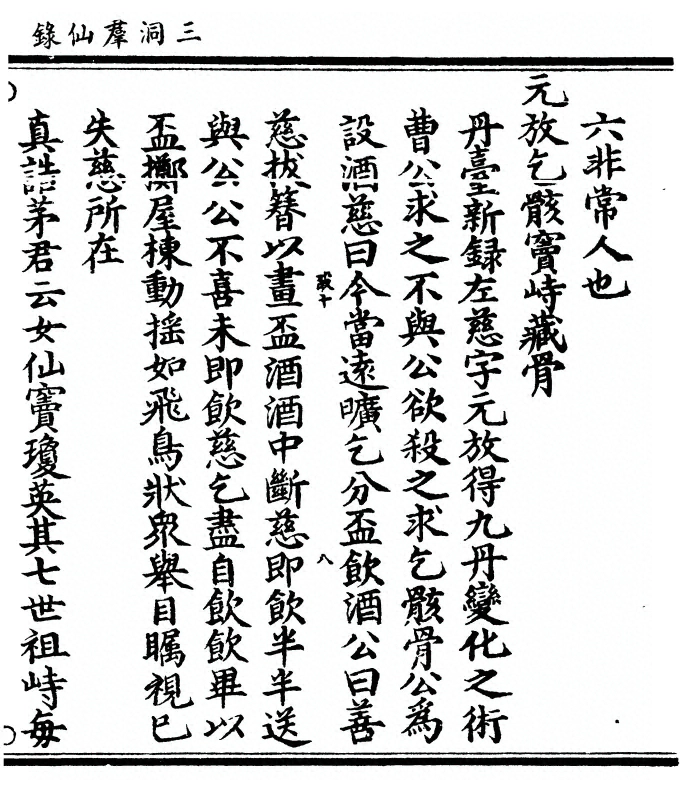 三洞羣仙錄
六非常人也
元放乞骸竇峙藏骨
丹臺新録左慈字元放得九丹變化之術
曹公求之不與公欲殺之求乞骸骨公爲
設酒慈曰今當遠曠乞分盃飲酒公曰善
慈拔簪以畫盃酒酒中斷慈即飲半半送
與公公不喜未即飲慈乞盡自飲飲畢以
盃擲屋棟動揺如飛鳥狀衆舉目矚視已
失慈所在
真誥茅君云女仙竇瓊英其七世祖峙毎